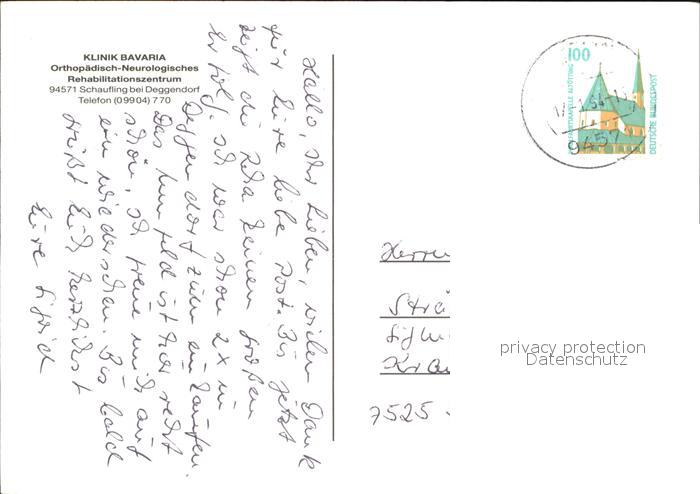 KLINIK BAVARIA
Orthopädisch-Neurologisches
Rehabilitationszentrum
94571 Schaufling bei Deggendorf
Telefon (09904) 770
Hallo, Ihr Lieben, vielen Dank
für Eure liebe Post. Bis jetzt
zeigt die Reha keinen großen
Erfolg. Ich war schon 2x in
Deggendorf zum einkaufen.
Das Umfeld ist hier recht
schön. Ich freue mich auf
ein wiedersehen. Bis bald
grüßt Euch herzlichst
Eure Sigrid
100
DEUTSCHE BUNDESPOST
945
Herrn
Strä
7525
privacy protection
Datenschutz